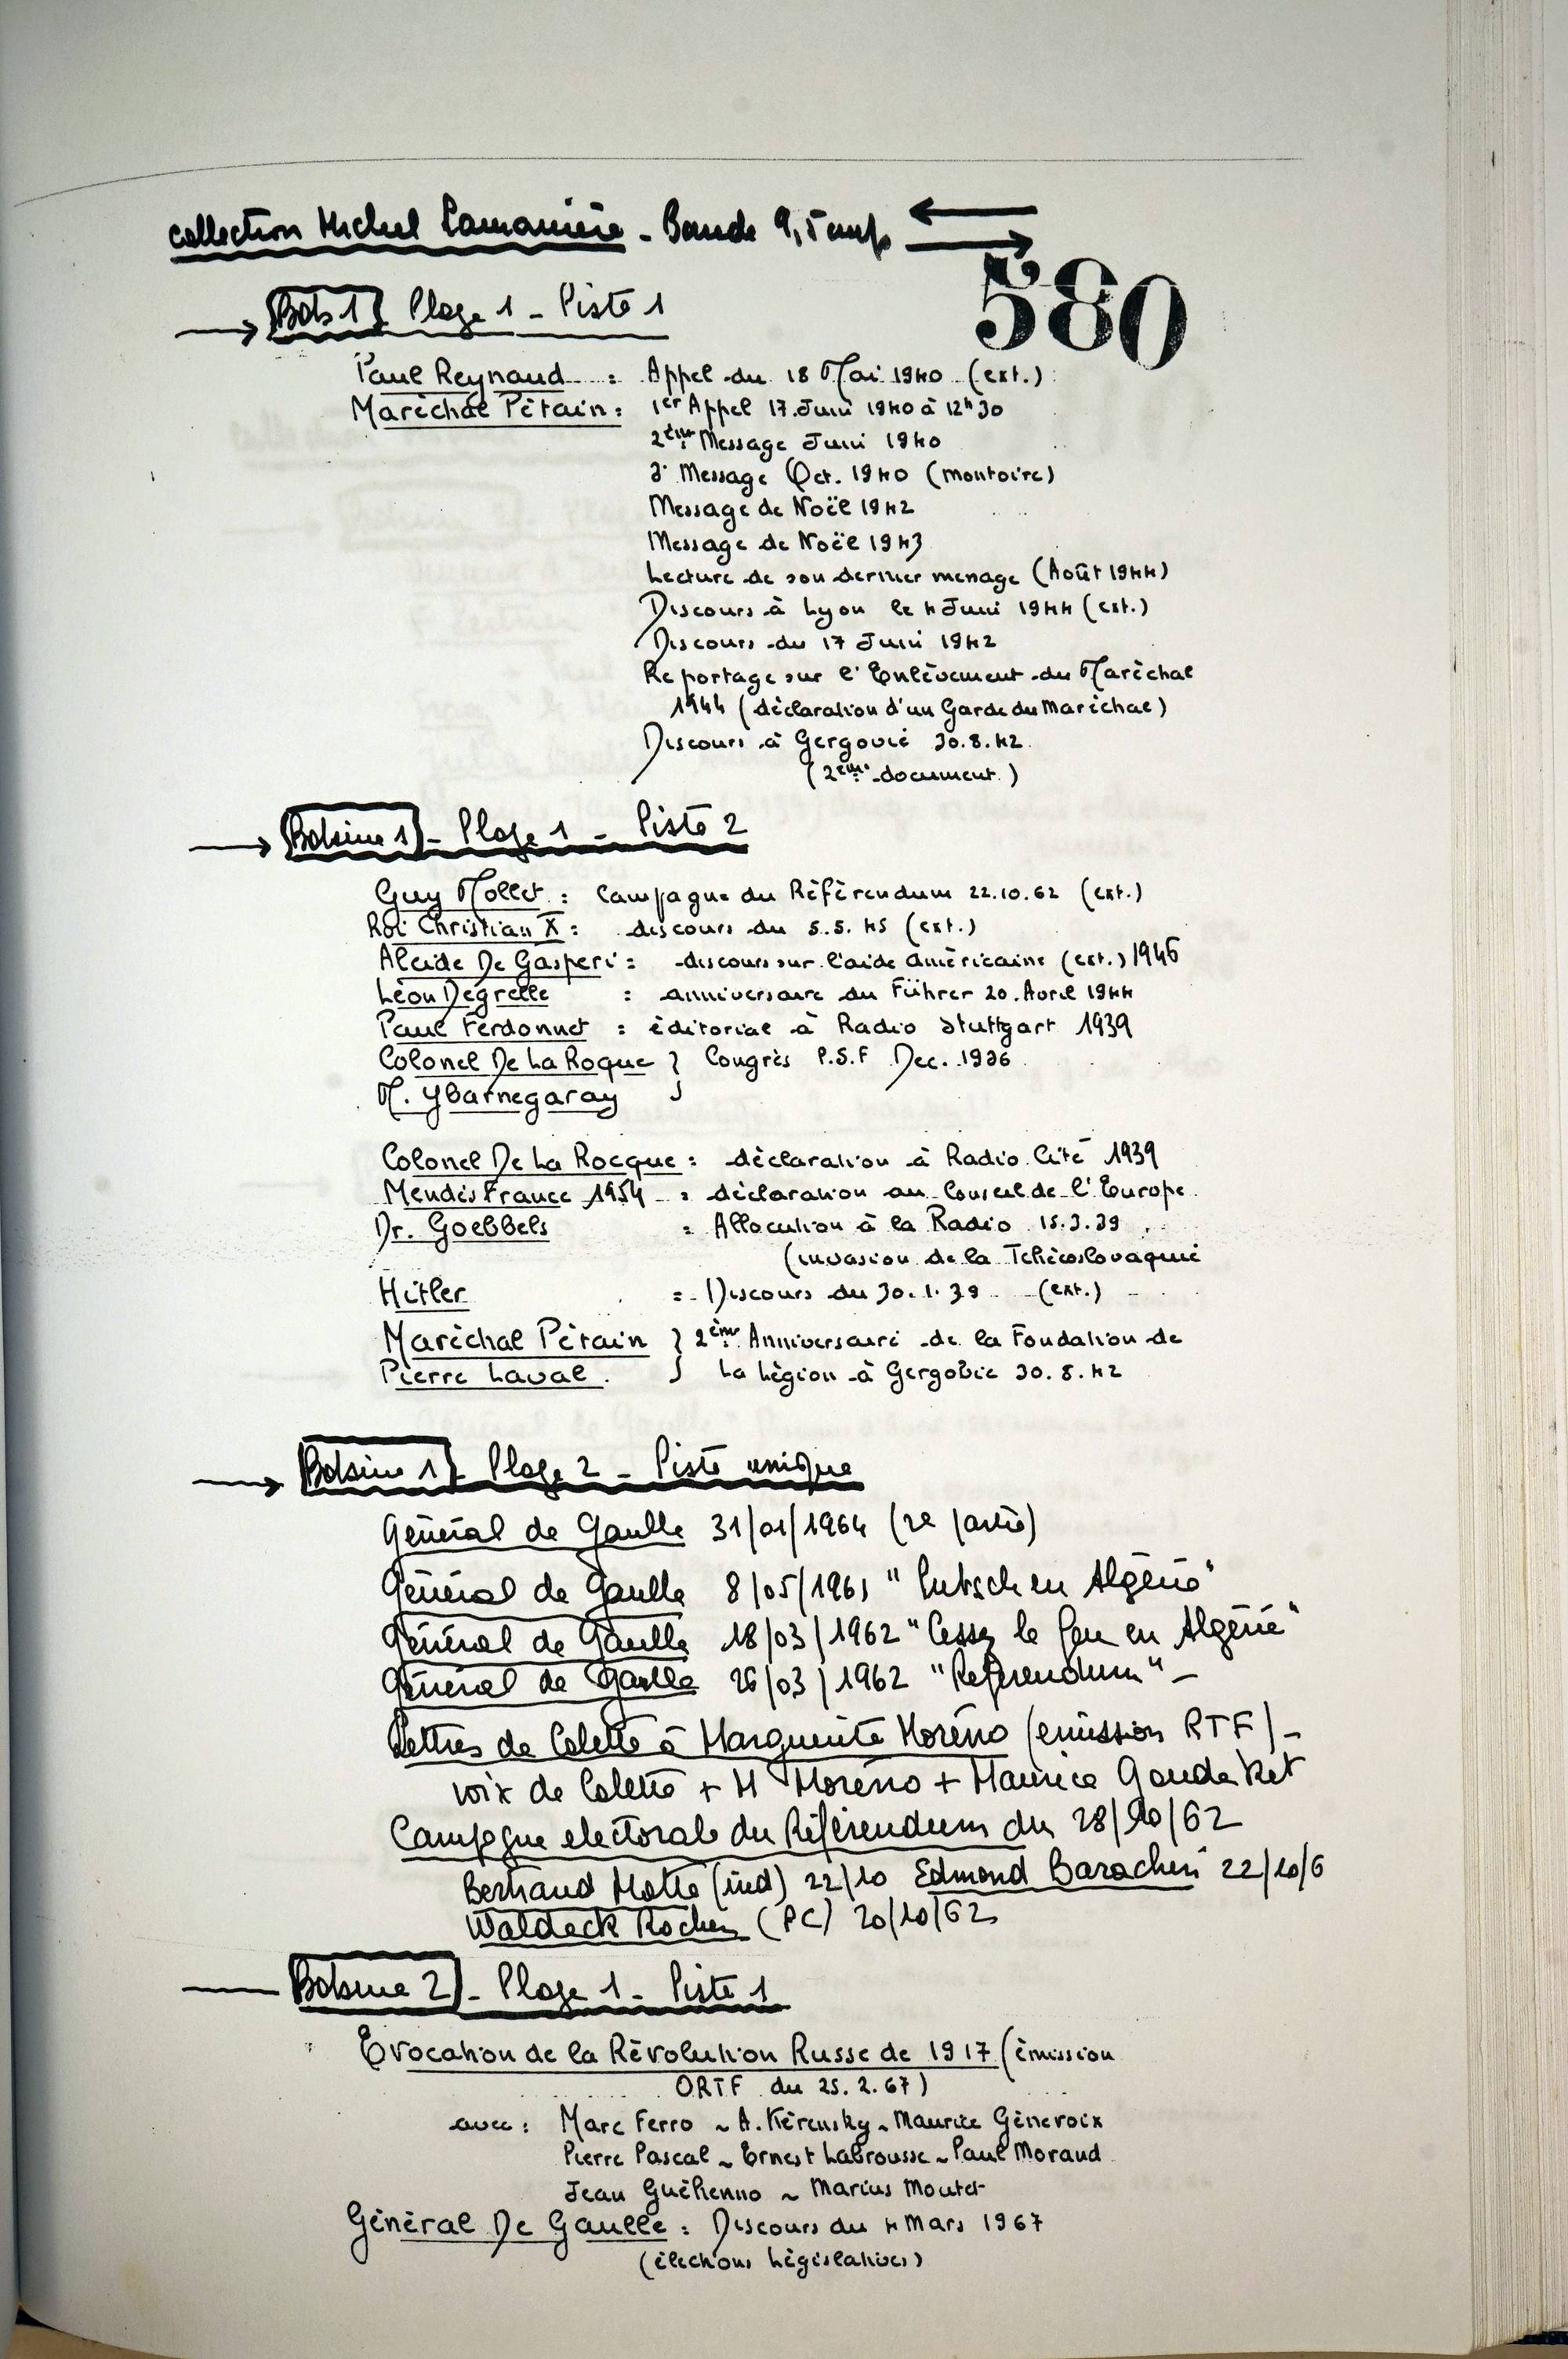 collection Michel Lamanière - Bande 9,5 cm/s
580
Bob 1 Plage 1 - Piste 1
Paul Reynaud : Appel du 18 Mai 1940 (ext.)
Maréchal Pétain : 1er Appel 17 Juin 1940 à 12h30
2ème Message Juin 1940
3e Message Oct. 1940 (Montoire)
Message de Noël 1942
Message de Noël 1943
Lecture de son dernier message (Août 1944)
Discours à Lyon le 4 Juin 1944 (ext.)
Discours du 17 Juin 1942
Reportage sur l'Enlèvement du Maréchal
1944 (déclaration d'un Garde du Maréchal)
Discours à Gergovie 30.8.42
(2ème document)
Bobine 1 - Plage 1 - Piste 2
Guy Mollet : Campagne du Référendum 22.10.62 (ext.)
Roi Christian X : discours du 5.5.45 (ext.)
Alcide De Gasperi : discours sur l'aide américaine (ext.) 1946
Léon Degrelle : anniversaire du Führer 20 Avril 1944
Paul Ferdonnet : éditorial à Radio Stuttgart 1939
Colonel De La Roque } Congrès P.S.F Dec. 1936
M. Ybarnegaray }
Colonel De La Rocque : déclaration à Radio Cité 1939
Mendès France 1954 : déclaration au Conseil de l'Europe
Dr. Goebbels : Allocution à la Radio 15.3.39
(invasion de la Tchécoslovaquie
Hitler : Discours du 30.1.39 (ext.)
Maréchal Pétain } 2ème Anniversaire de la Fondation de
Pierre Laval } La Légion à Gergovie 30.8.42
Bobine 1 - Plage 2 - Piste unique
Général de Gaulle 31/01/1964 (2e partie)
Général de Gaulle 8/05/1961 "Putsch en Algérie"
Général de Gaulle 18/03/1962 "Cessez le feu en Algérie"
Général de Gaulle 26/03/1962 "Référendum" -
Lettres de Colette à Marguerite Moréno (émission RTF) -
voix de Colette + M Moréno + Maurice Goudeket
Campagne electorale du Référendum du 28/10/62
Bertrand Motte (ind) 22/10 Edmond Barachin 22/10/6
Waldeck Rochet (PC) 20/10/62
Bobine 2 - Plage 1 - Piste 1
Evocation de la Révolution Russe de 1917 (émission
ORTF du 25.2.67)
avec : Marc Ferro ~ A. Kérensky ~ Maurice Génevoix
Pierre Pascal ~ Ernest Labrousse ~ Paul Morand
Jean Guéhenno ~ Marius Moutet
Général De Gaulle : Discours du 4 Mars 1967
(élections Législatives)